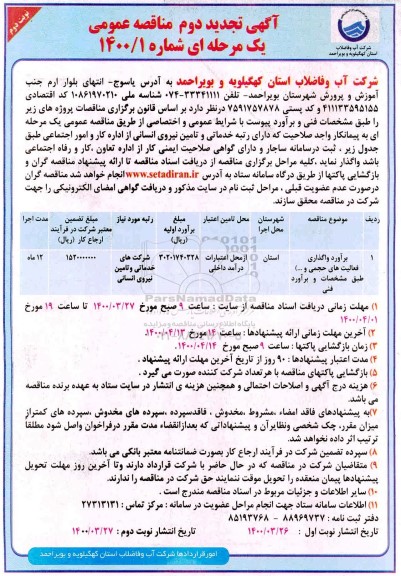 نوبت دوم
آگهی تجدید دوم مناقصه عمومی
یک مرحله ای شماره ۱۴۰۰/۱
شرکت آب وفاضلاب
استان کهگیلویه و بویراحمد
شرکت آب وفاضلاب استان کهگیلویه و بویراحمد به آدرس یاسوج- انتهای بلوار ارم جنب
آموزش و پرورش شهرستان بویراحمد- تلفن ۳۳۳۴۱۱۱۱-۰۷۴ شناسه ملی ۱۰۸۶۱۹۷۰۲۱۰ کد اقتصادی
۴۱۱۱۳۳۵۹۵۱۵۵ و کد پستی ۷۵۹۱۷۵۷۸۷۸ درنظر دارد بر اساس قانون برگزاری مناقصات پروژه های زیر
را طبق مشخصات فنی و برآورد پیوست با شرایط عمومی و اختصاصی از طریق مناقصه عمومی یک مرحله
ای به پیمانکار واجد صلاحیت که دارای رتبه خدماتی و تامین نیروی انسانی از اداره کار و امور اجتماعی طبق
جدول زیر ، ثبت درسامانه ساجار و دارای گواهی صلاحیت ایمنی کار از اداره تعاون ،کار و رفاه اجتماعی
باشد واگذار نماید .کلیه مراحل برگزاری مناقصه از دریافت اسناد مناقصه تا ارائه پیشنهاد مناقصه گران و
بازگشایی پاکتها از طریق درگاه سامانه ستاد به آدرس www.setadiran.ir انجام خواهد شد مناقصه گران
درصورت عدم عضویت قبلی ، مراحل ثبت نام در سایت مذکور و دریافت گواهی امضای الکترونیکی را جهت
شرکت در مناقصه محقق سازند.
ردیف موضوع مناقصه شهرستان محل اجرا محل تامین اعتبار مبلغ برآورد اولیه (ریال) رتبه مورد نیاز مبلغ تضمین معتبر شرکت در فرآیند ارجاع کار (ریال) مدت اجرا
۱ برآورد واگذاری فعالیت های حجمی و ...) طبق مشخصات و برآورد فنی استان ازمحل اعتبارات درآمد داخلی شرکت های خدماتی وتامین نیروی انسانی ۱۲ ماه
۱) مهلت زمانی دریافت اسناد مناقصه از سایت : ساعت ۹ صبح مورخ ۱۴۰۰/۰۳/۲۷ تا ساعت ۱۹ مورخ
۱۴۰۰/۰۴/۰۱
۲) آخرین مهلت زمانی ارائه پیشنهادها : ساعت ۱۴ مورخ ۱۴۰۰/۰۴/۱۳.
۳) زمان بازگشایی پاکتها : ساعت ۹ صبح مورخ ۱۴۰۰/۰۴/۱۴.
۴) مدت اعتبار پیشنهادها : ۹۰ روز از تاریخ آخرین مهلت ارائه پیشنهاد .
۵) بازگشایی پاکتهای مناقصه با هرتعداد شرکت کننده صورت می گیرد .
۶) هزینه درج آگهی و اصلاحات احتمالی و همچنین هزینه ی انتشار در سایت ستاد به عهده برنده مناقصه
می باشد.
۷) به پیشنهادهای فاقد امضاء ،مشروط ،مخدوش ، فاقدسپرده ،سپرده های مخدوش ،سپرده های کمتراز
میزان مقرر، چک شخصی ونظایرآن و پیشنهاداتی که بعدازانقضاء مدت مقرر درفراخوان واصل شود مطلقا
ترتیب اثر داده نخواهد شد.
۸) سپرده تضمین شرکت در فرآیند ارجاع کار بصورت ضمانتنامه معتبر بانکی می باشد.
۹) متقاضیان شرکت در مناقصه که در حال حاضر با شرکت قرارداد دارند وتا آخرین روز مهلت تحویل
پیشنهادها پیمان منعقده را تحویل موقت ننمایند حق شرکت در مناقصه را ندارند.
۱۰) سایر اطلاعات و جزئیات مربوط در اسناد مناقصه مندرج است .
۱۱) اطلاعات سامانه ستاد جهت انجام مراحل عضویت در سامانه : مرکز تماس : ۲۷۳۱۳۱۳۱
دفتر ثبت نامه : ۸۸۹۶۹۷۳۷ - ۸۵۱۹۳۷۶۸
تاریخ انتشار نوبت اول : ۱۴۰۰/۰۳/۲۶ تاریخ انتشار نوبت دوم : ۱۴۰۰/۰۳/۲۷
امور قراردادها شرکت آب وفاضلاب استان کهگیلویه و بویراحمد
ParsNamadData